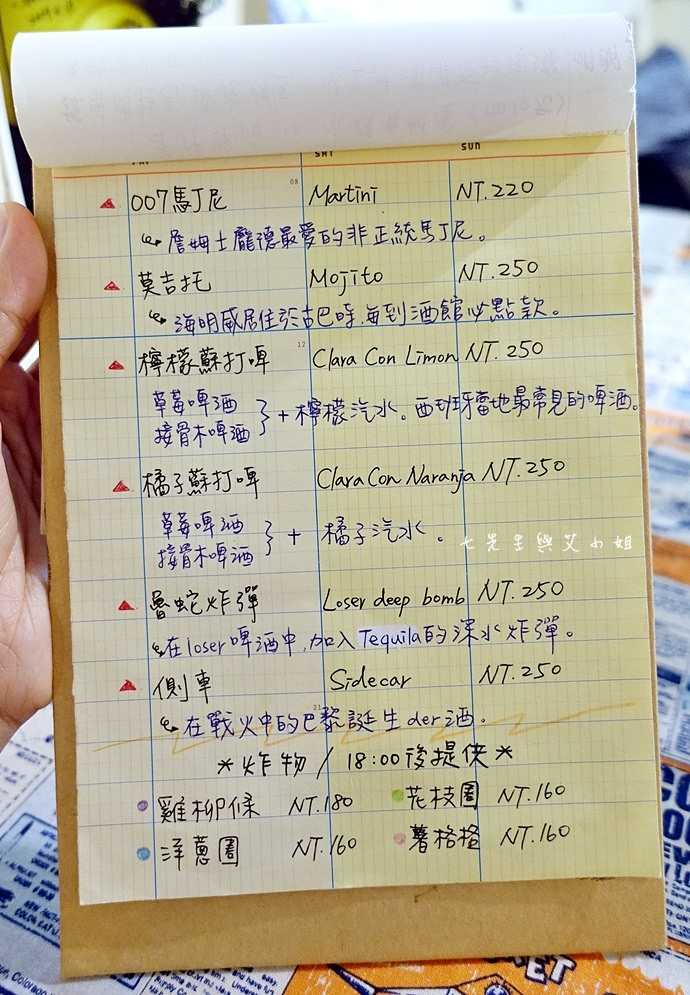 SAT SUN
007馬丁尼 Martini NT.220
詹姆士龐德最愛的非正統馬丁尼。
莫吉托 Mojito NT.250
海明威居住於古巴時,每到酒館必點款。
檸檬蘇打啤 Clara Con Limon NT.250
草莓啤酒
接骨木啤酒 } + 檸檬汽水。西班牙當地最常見的啤酒。
橘子蘇打啤 Clara Con Naranja NT.250
草莓啤酒
接骨木啤酒 } + 橘子汽水。
七先生與艾小姐
魯蛇炸彈 Loser deep bomb NT.250
在loser啤酒中,加入Tequila的深水炸彈。
側車 Sidecar NT.250
在戰火中的巴黎誕生der酒。
*炸物/18:00後提供*
雞柳條 NT.180 花枝圈 NT.160
洋蔥圈 NT.160 薯格格 NT.160